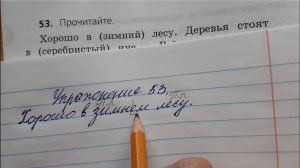 53. Прочитайте.
Хорошо в (зимний) лесу. Деревья стоят
в (серебристый)
Упражнение 53.
Хорошо в зимнем лесу.